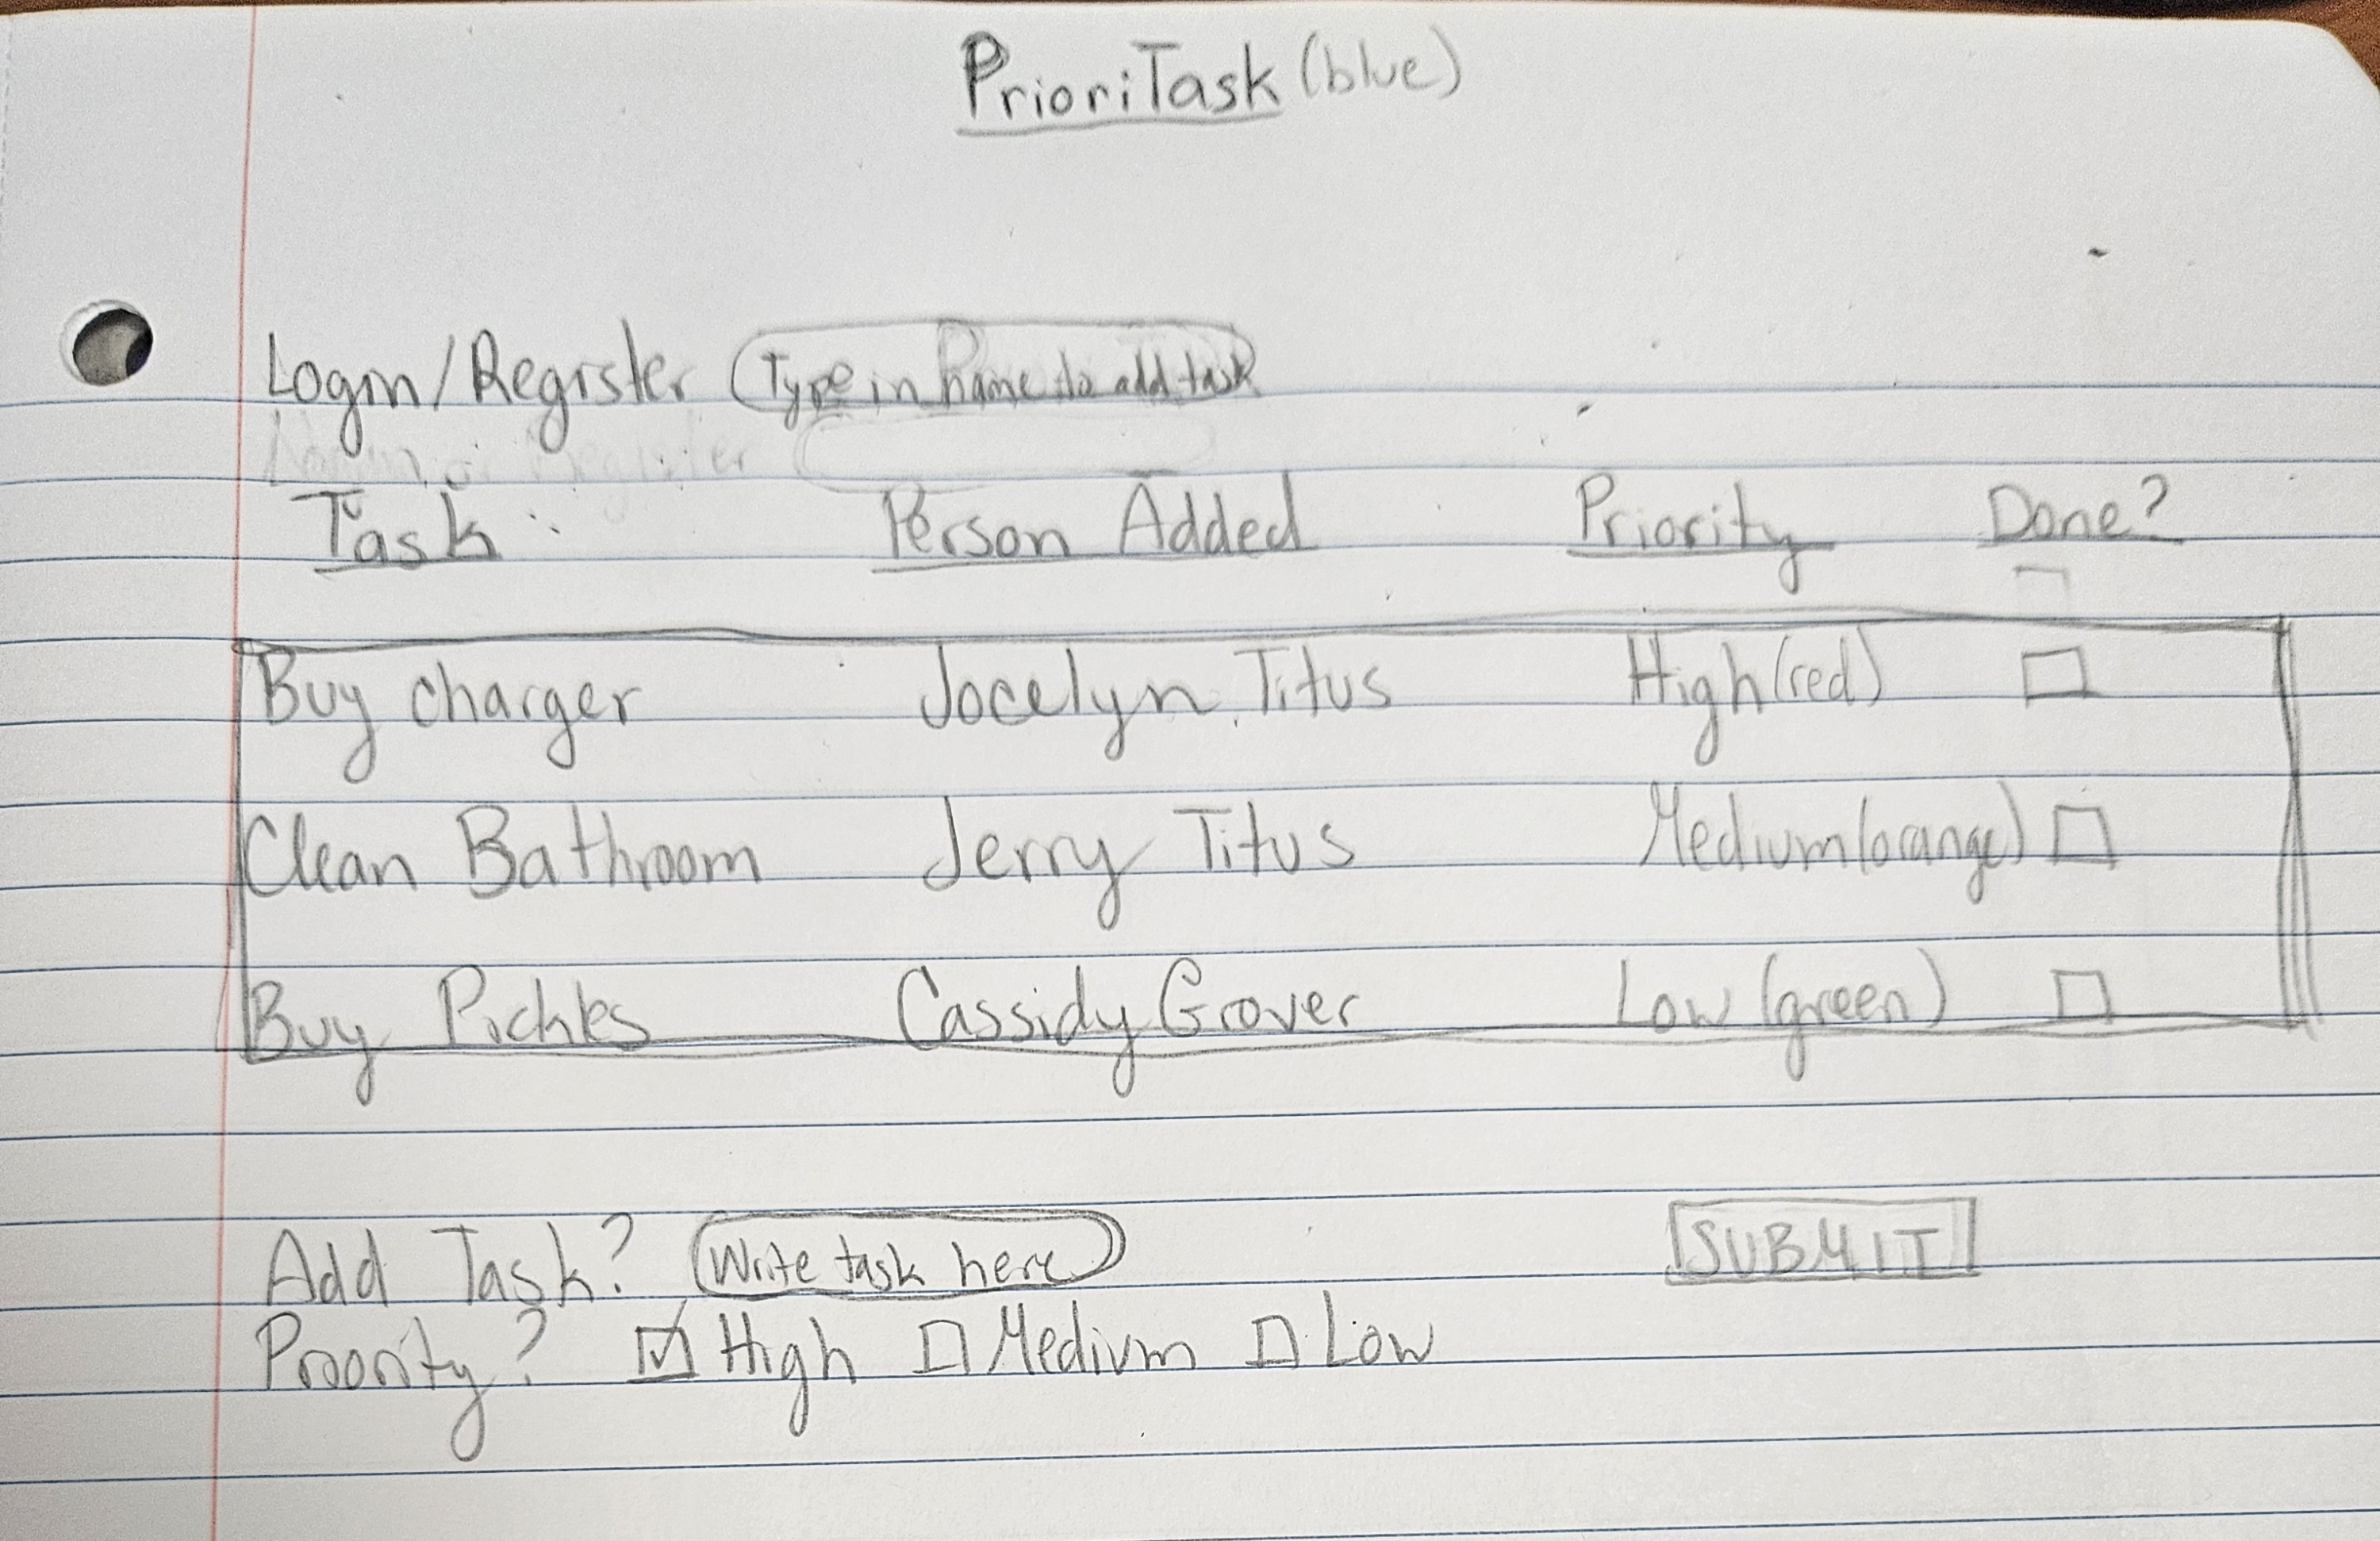 PrioriTask (blue)
Login/Register Type in name to add task
Task Person Added Priority Done?
Buy charger Jocelyn Titus High (red)
Clean Bathroom Jerry Titus Medium (orange)
Buy Pickles Cassidy Grover Low (green)
Add Task? Write task here SUBMIT
Priority? High Medium Low